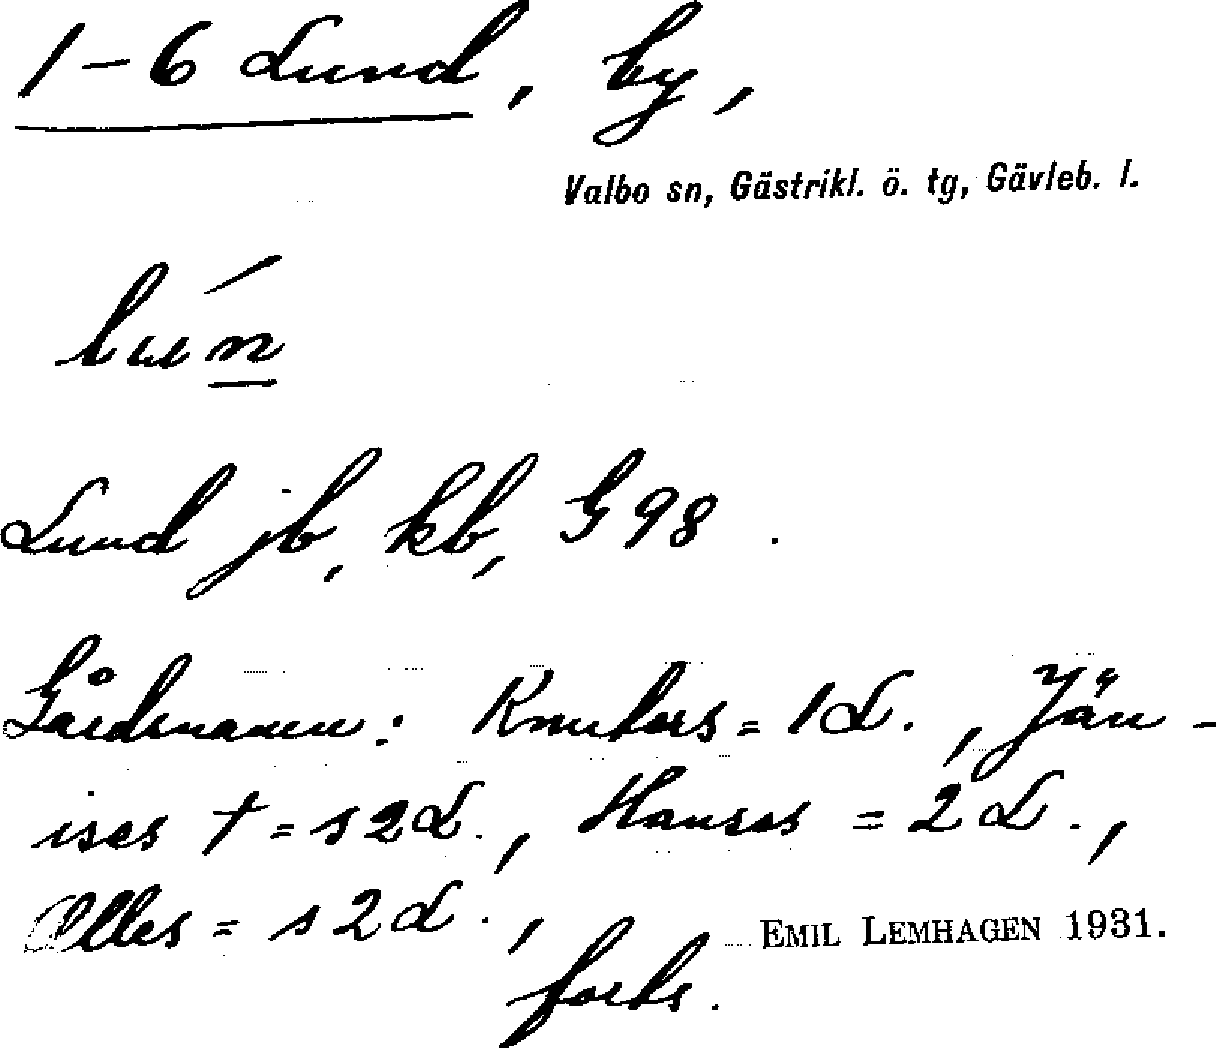 1-6 Lund, by,
Valbo sn, Gästrikl. ö. tg, Gävleb. l.
lún
Lund jb, kb, G 98.
Gårdsnamn: Knutors = 1 L., Jän-
ises † = s 2 L., Hansas = 2 L.,
Olles = s 2 L.,
EMIL LEMHAGEN 1931.
forts.